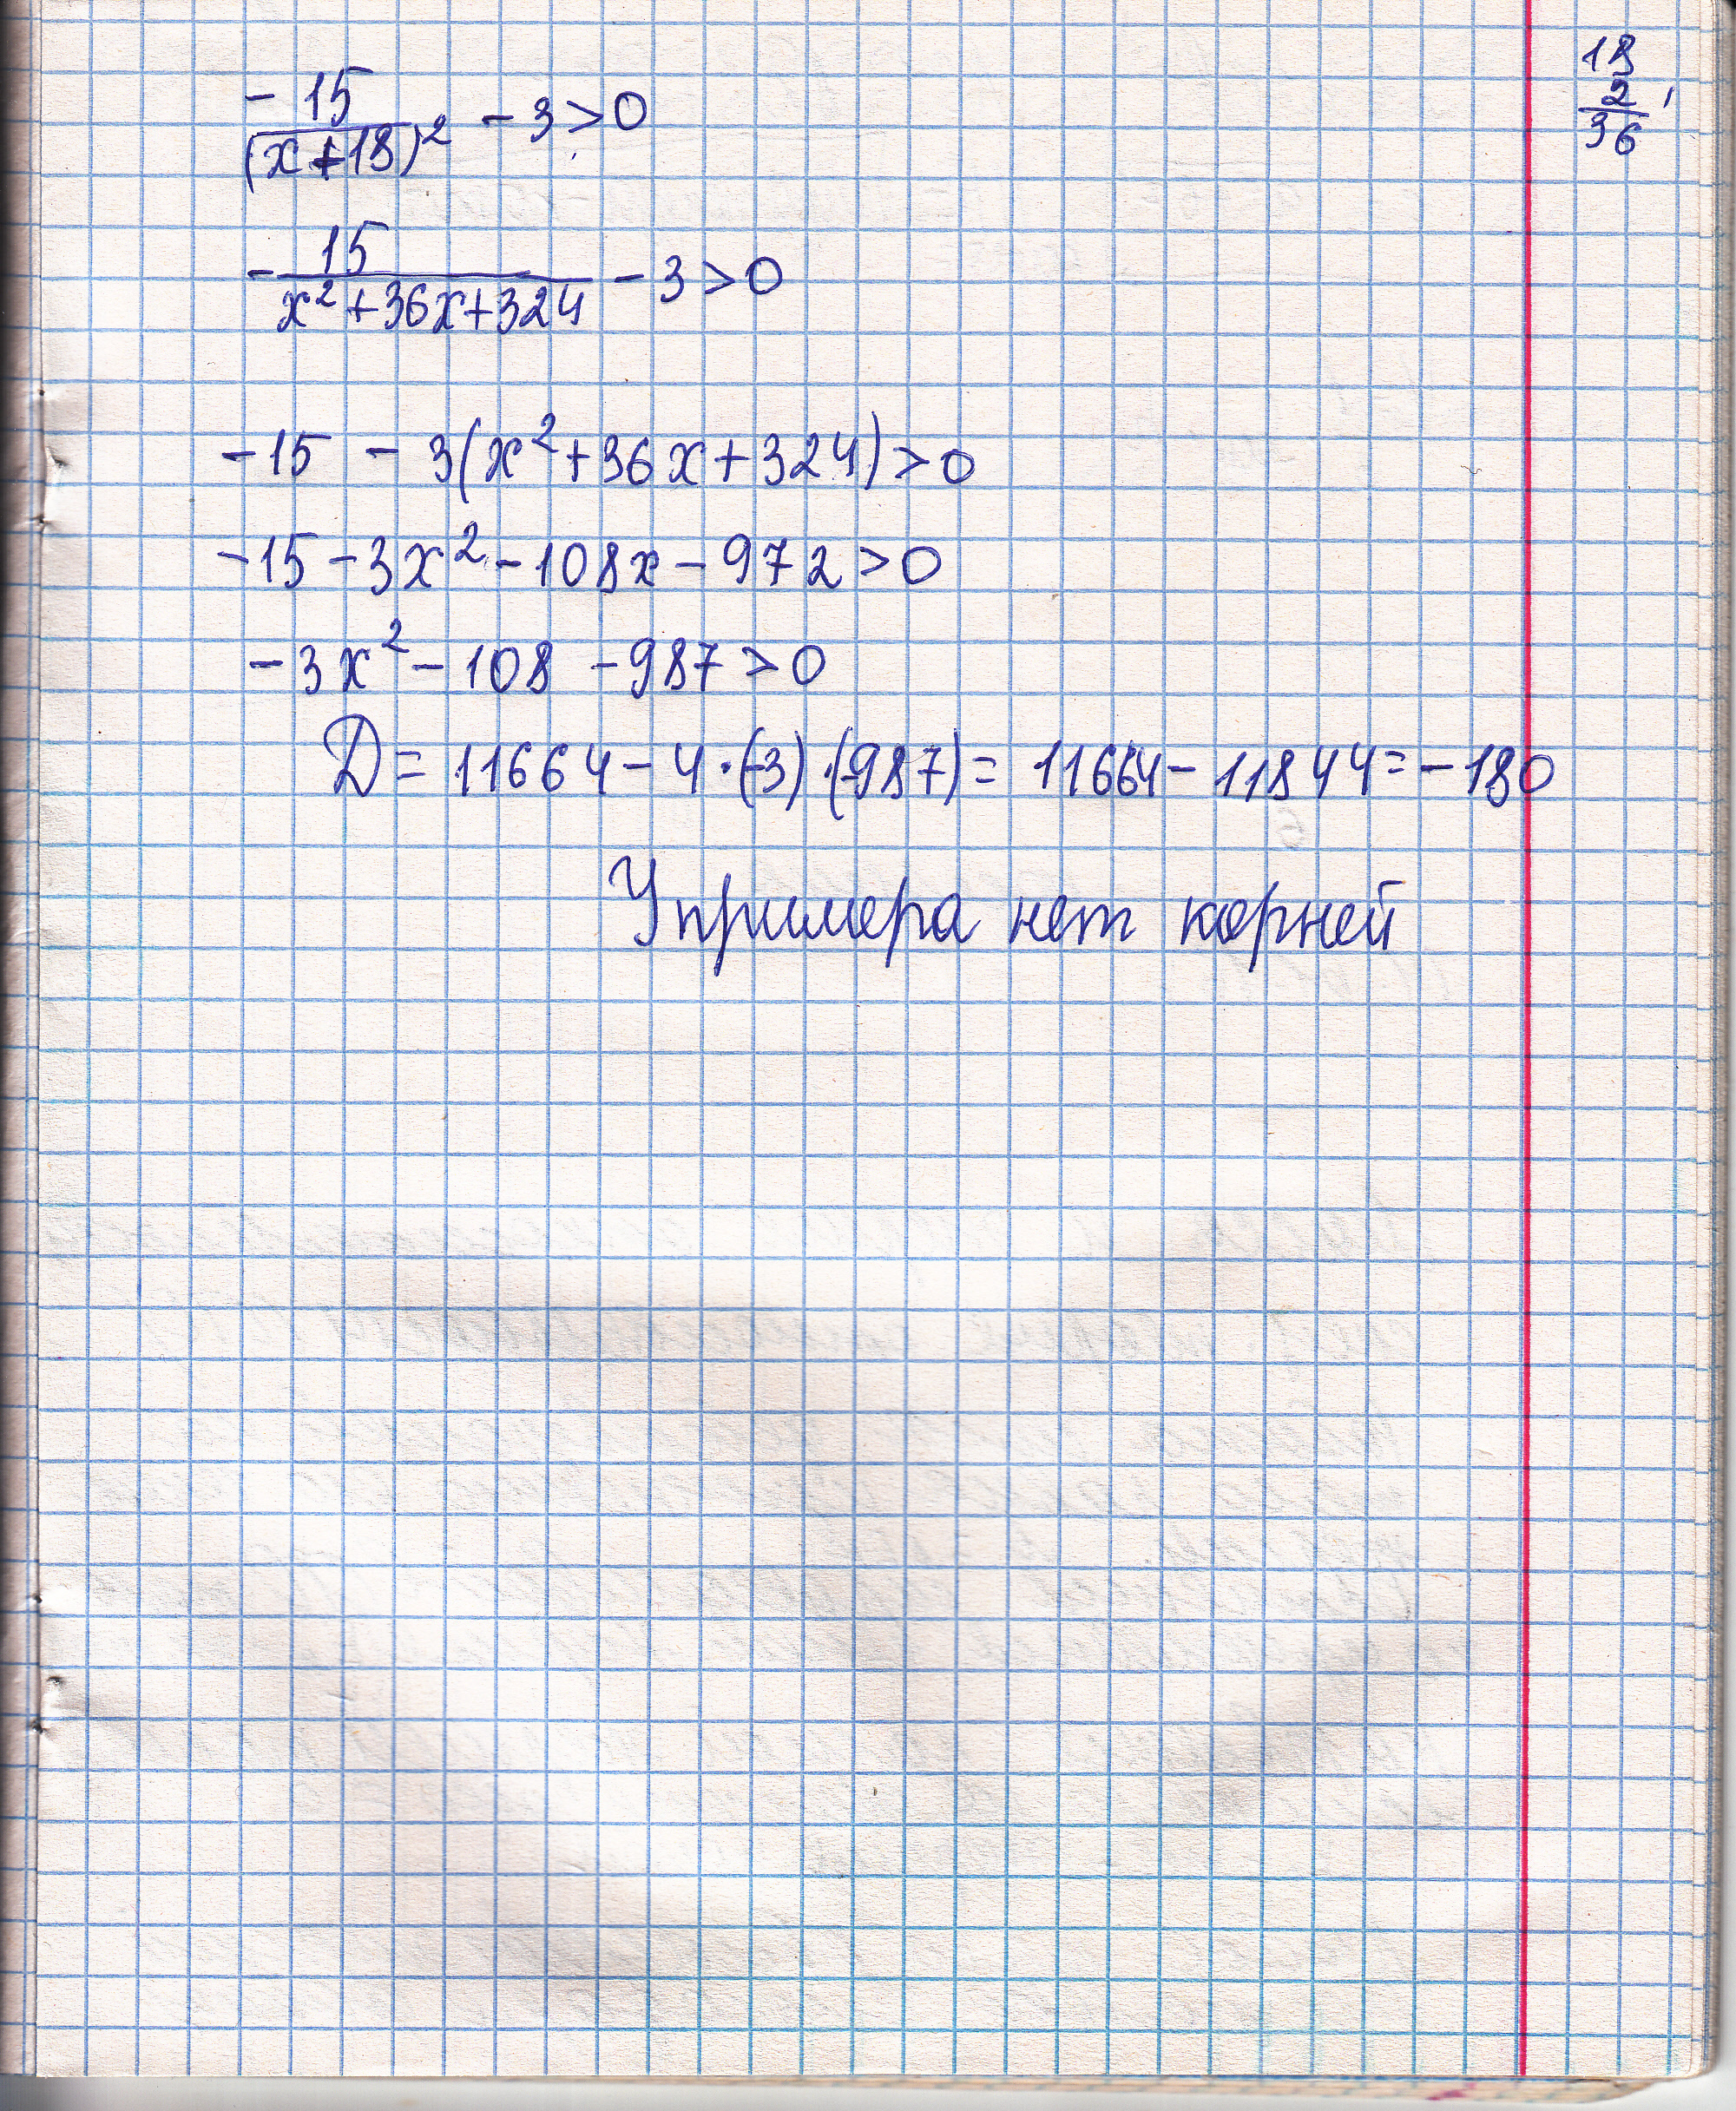 -15
(x+18)² - 3 > 0
18
2
36
- 15
x² + 36x + 324 - 3 > 0
-15 - 3(x² + 36x + 324) > 0
-15 - 3x² - 108x - 972 > 0
-3x² - 108 - 987 > 0
D = 11664 - 4·(-3)·(-987) = 11664 - 11844 = -180
У примера нет корней